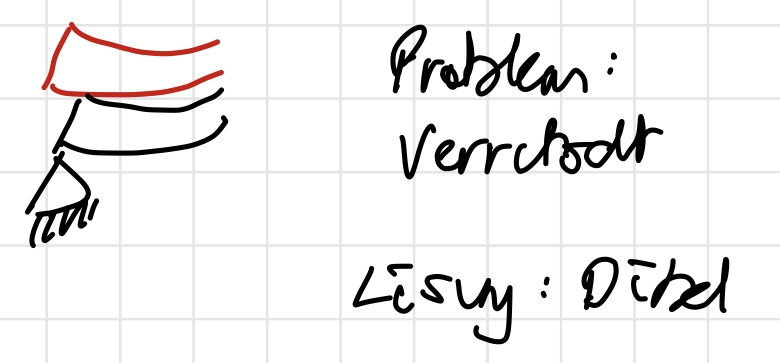 Problem:
Verrutscht
Lösung: Dübel